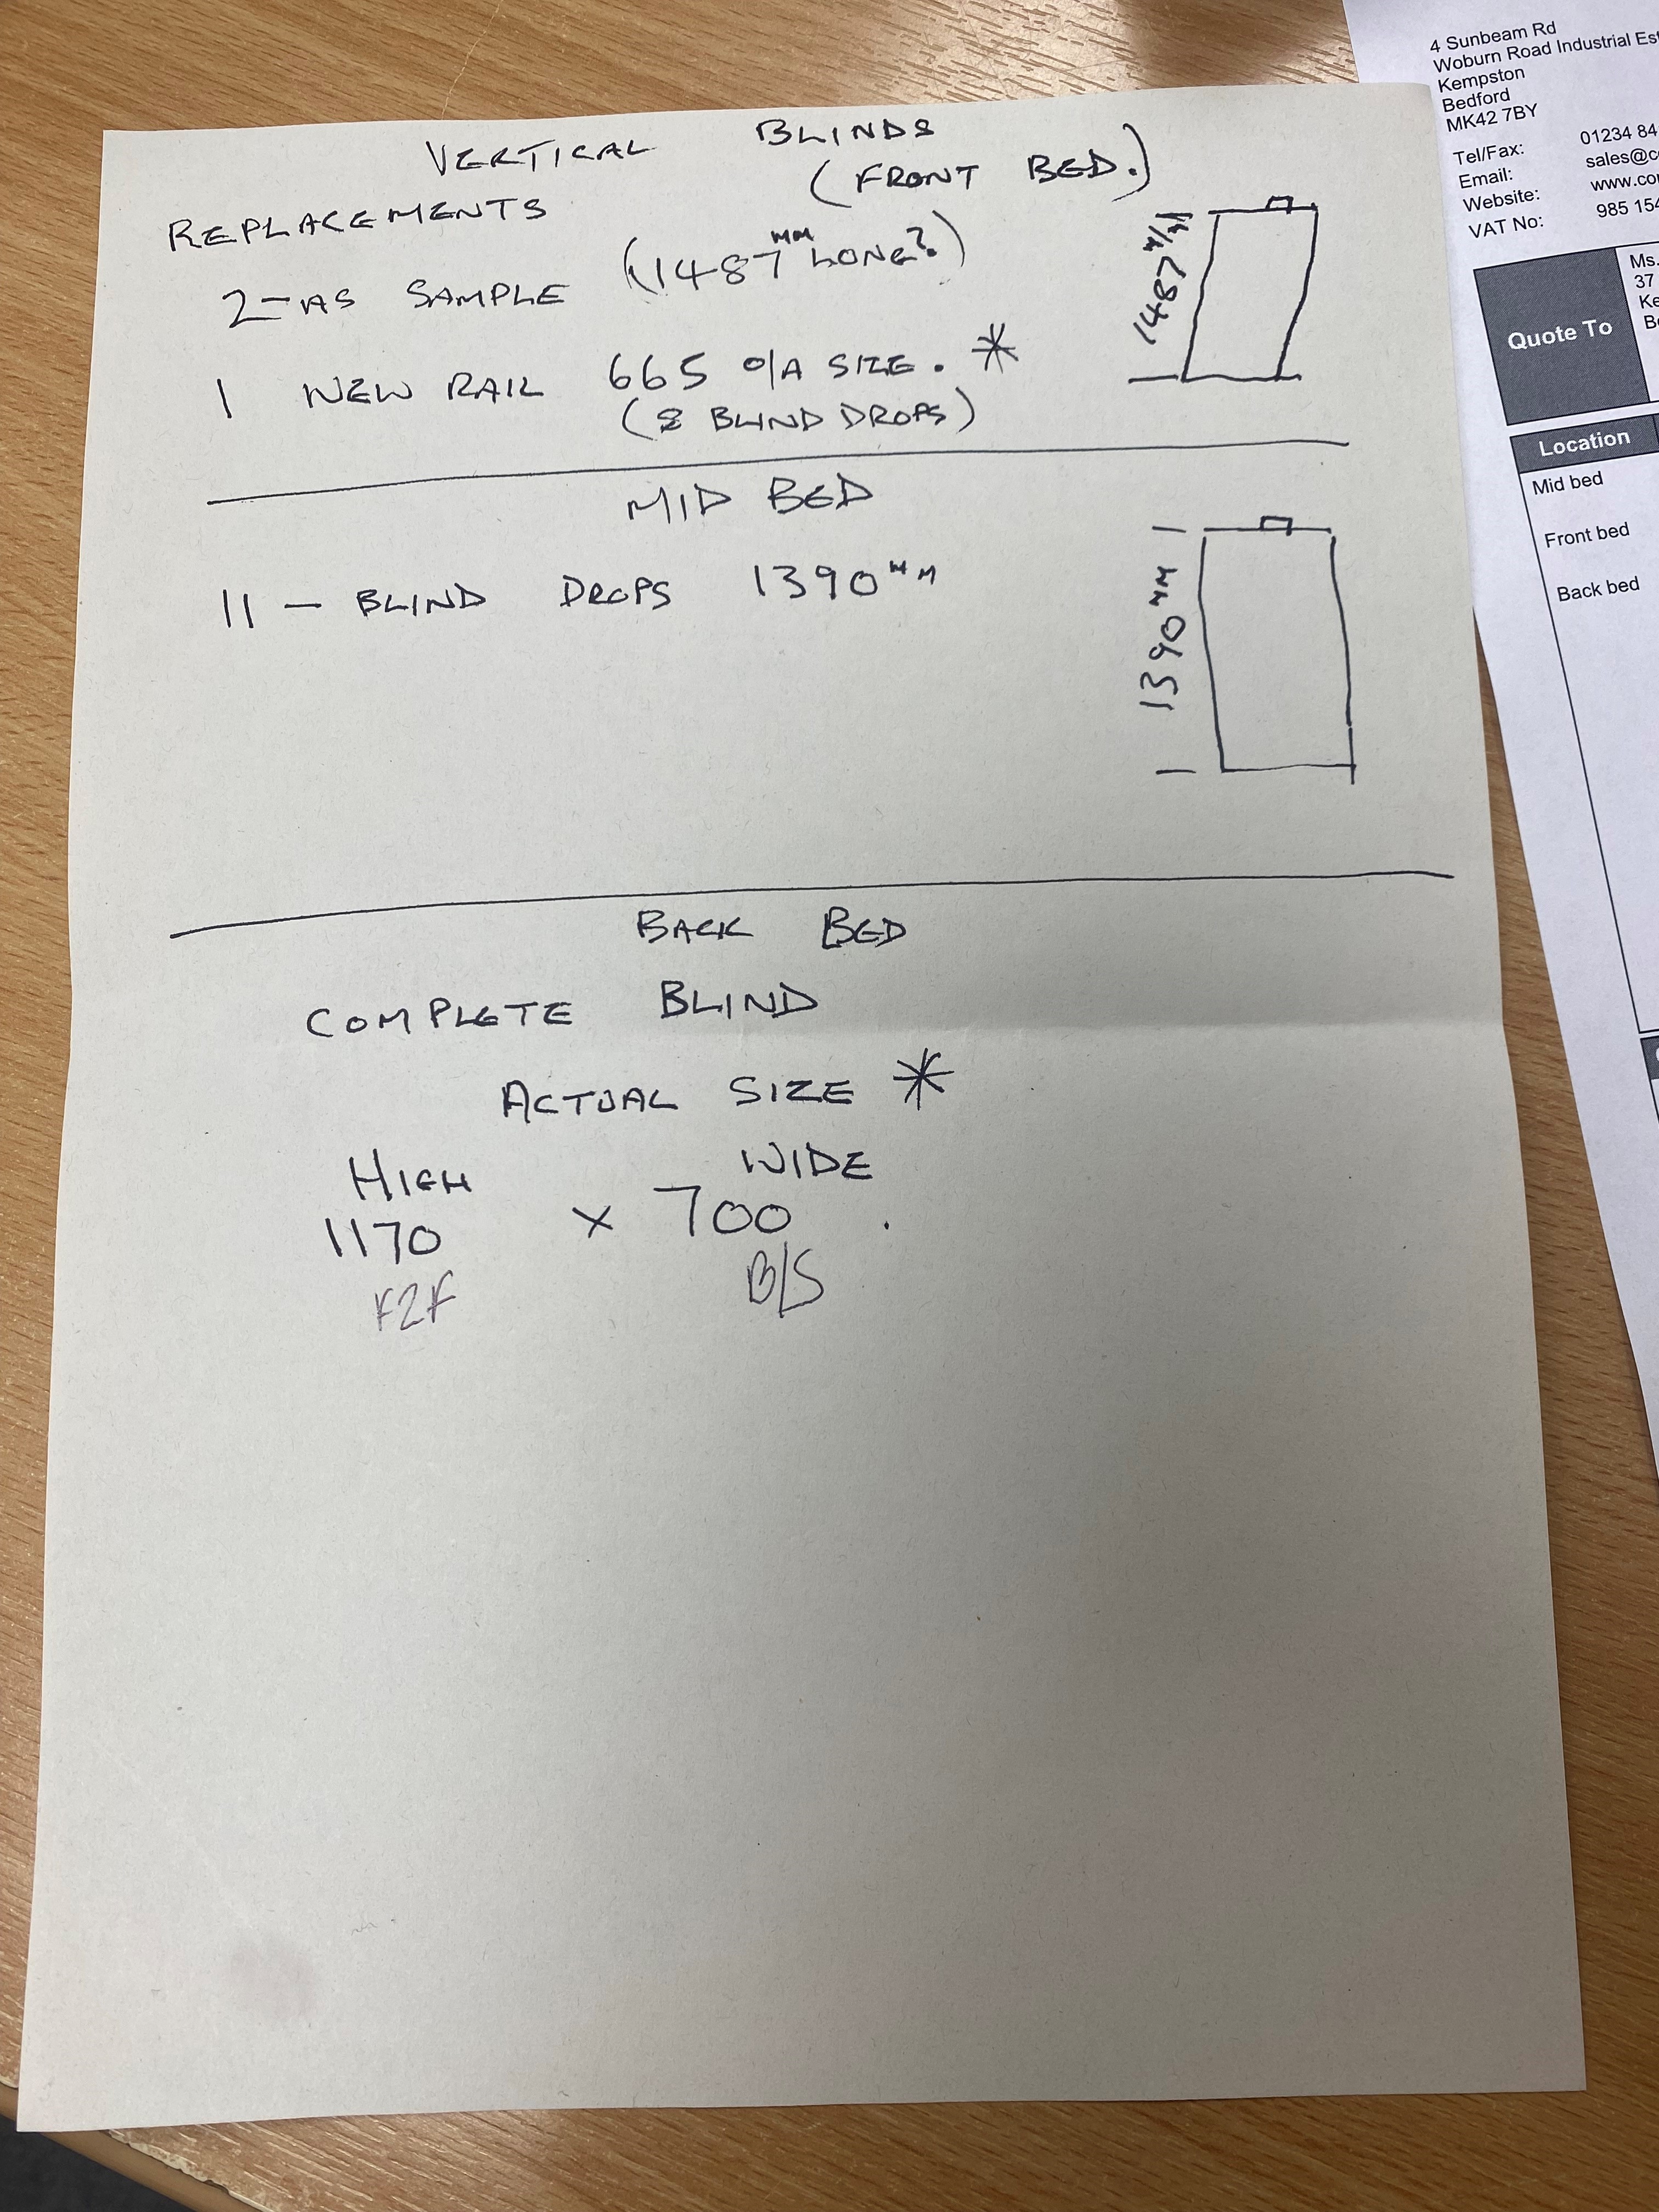 VERTICAL BLINDS
(FRONT BED.)
REPLACEMENTS
2-AS SAMPLE (1487MM LONG?)
1487 M/M
1 NEW RAIL 665 O/A SIZE. *
(& BLIND DROPS)
MID BED
11 - BLIND DROPS 1390MM
1390MM
BACK BED
COMPLETE BLIND
ACTUAL SIZE *
HIGH WIDE
1170 x 700 .
F2F B/S
4 Sunbeam Rd
Woburn Road Industrial Est
Kempston
Bedford
MK42 7BY
Tel/Fax: 01234 84
Email: sales@c
Website: www.co
VAT No: 985 154
Quote To
Ms.
37
Ke
Be
Location
Mid bed
Front bed
Back bed